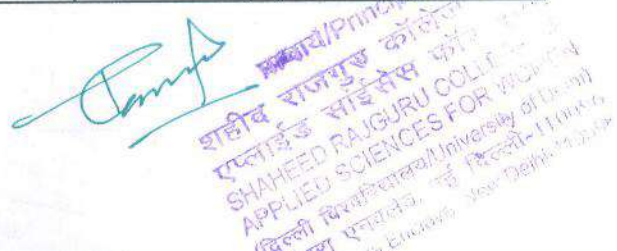 प्राचार्य/Principal
शहीद राजगुरु कॉलेज
एप्लाईड साईंसेस फॉर
SHAHEED RAJGURU COLLEGE
APPLIED SCIENCES FOR WOMEN
(दिल्ली विश्वविद्यालय/University of Delhi)
एनक्लेव, दिल्ली-
Enclave, New Delhi